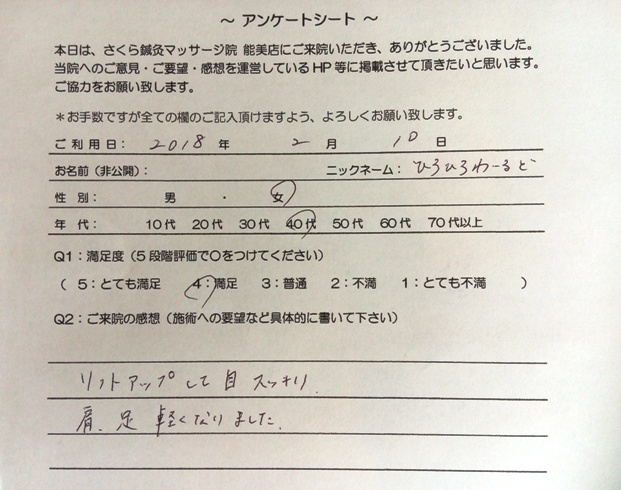 ～ アンケートシート ～
本日は、さくら鍼灸マッサージ院 能美店にご来院いただき、ありがとうございました。
当院へのご意見・ご要望・感想を運営しているHP等に掲載させて頂きたいと思います。
ご協力をお願い致します。
＊お手数ですが全ての欄のご記入頂けますよう、よろしくお願い致します。
ご利用日： 2018 年 2 月 10 日
お名前（非公開）： ニックネーム： ひろひろわーるど
性 別： 男 ・ 女
年 代： 10代 20代 30代 40代 50代 60代 70代以上
Q1：満足度（5段階評価で〇をつけてください）
（ 5：とても満足 4：満足 3：普通 2：不満 1：とても不満 ）
Q2：ご来院の感想（施術への要望など具体的に書いて下さい）
リフトアップして目スッキリ．
肩、足 軽くなりました．